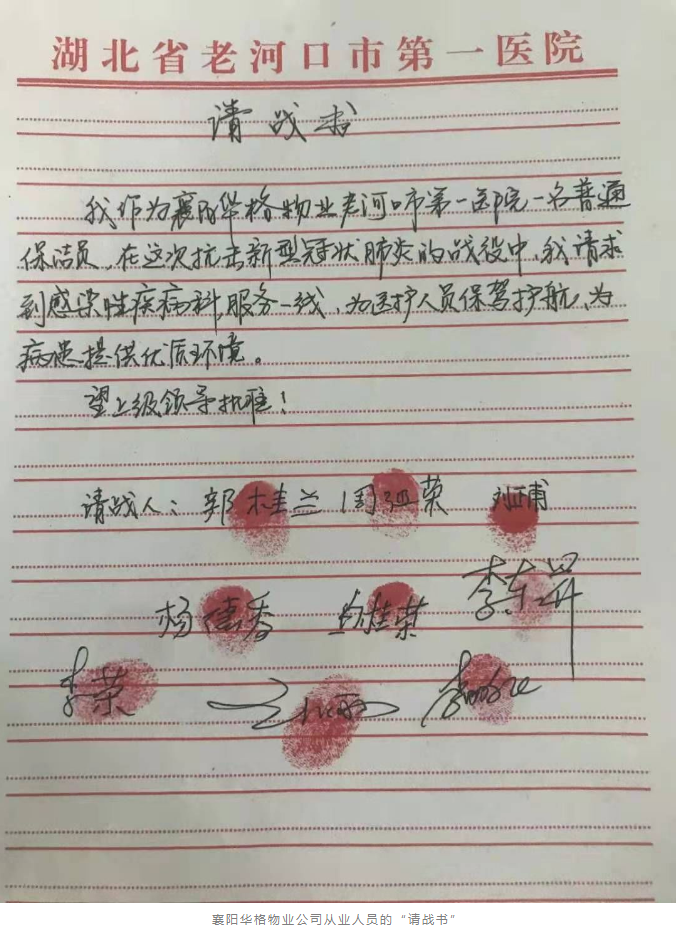 湖北省老河口市第一医院
请战书
我作为襄阳华格物业老河口市第一医院一名普通
保洁员,在这次抗击新型冠状肺炎的战役中,我请求
到感染性疾病科,服务一线,为医护人员保驾护航,为
病患提供优质环境。
望上级领导批准!
请战人:郭桂兰 周亚荣
杨德香 桂荣 李东升
李荣
襄阳华格物业公司从业人员的“请战书”